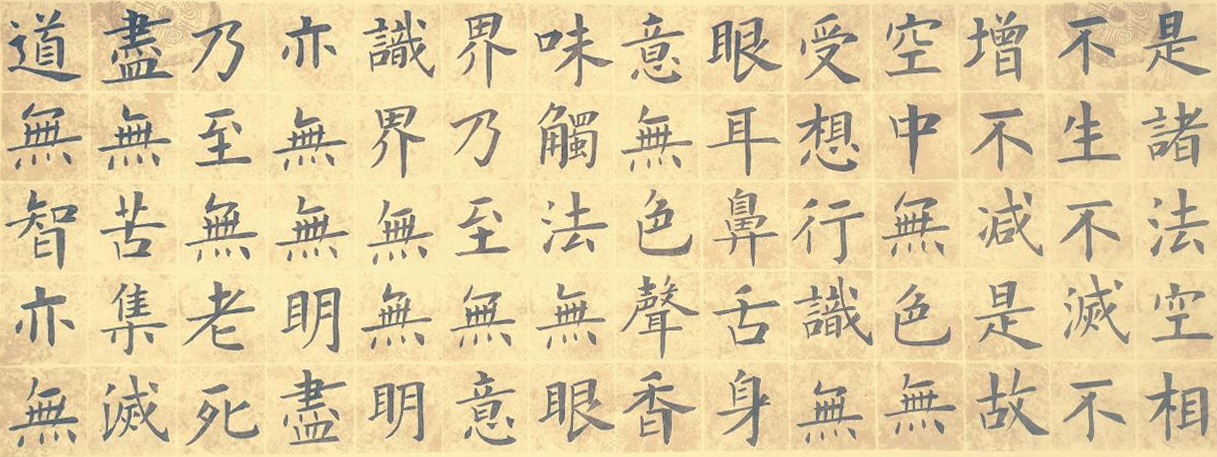 是諸法空相
不生不滅不
增不減是故
空中無色無
受想行識無
眼耳鼻舌身
意無色聲香
味觸法無眼
界乃至無意
識界無無明
亦無無明盡
乃至無老死
盡無苦集滅
道無智亦無